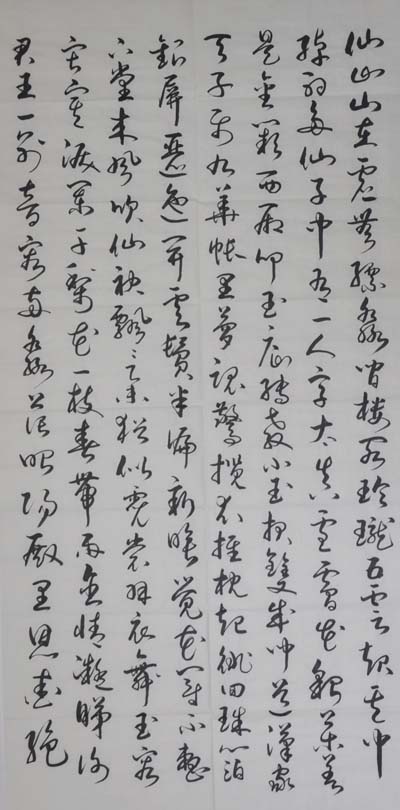 仙山山在虛無縹緲間樓閣玲瓏五云起其中
綽約多仙子中有一人字太真雪膚花貌參差
是金闕西廂叩玉扃轉教小玉報雙成聞道漢家
天子使九華帳里夢魂驚攬衣推枕起徘徊珠箔
銀屏邐迤開雲鬢半偏新睡覺花冠不整
下堂來風吹仙袂飄々舉猶似霓裳羽衣舞玉容
寂寞淚闌干梨花一枝春帶雨含情凝睇謝
君王一別音容兩渺茫昭陽殿里恩愛絕